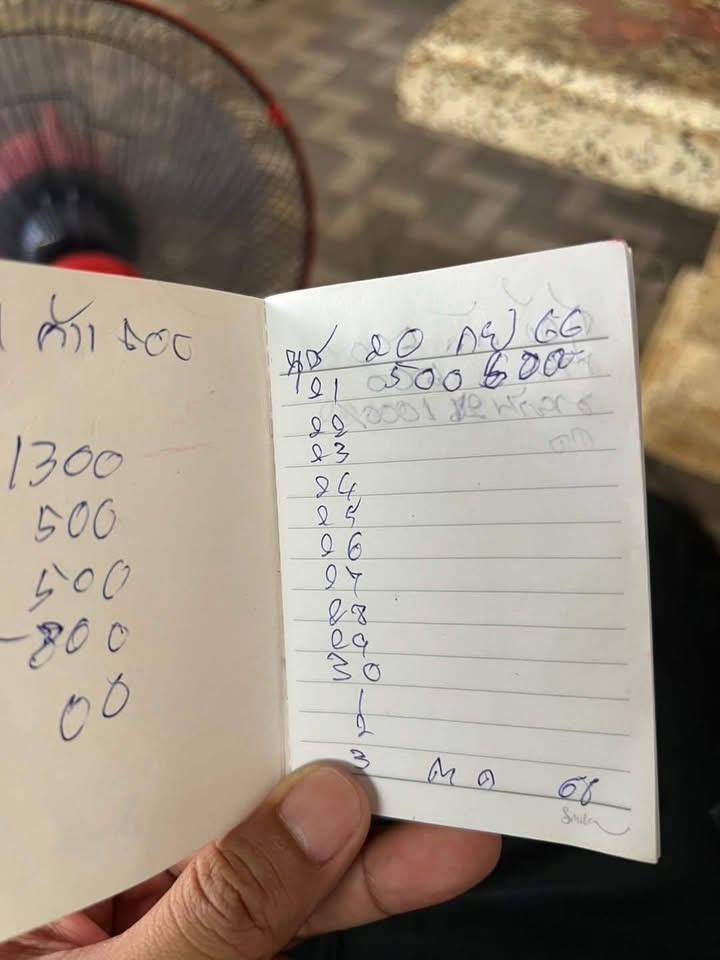 ค้าง 500
1300
500
500
-800
00
20 กย 66
21 500 600
22
23
24
25
26
27
28
29
30
1
2
3 ตค 68
Smile